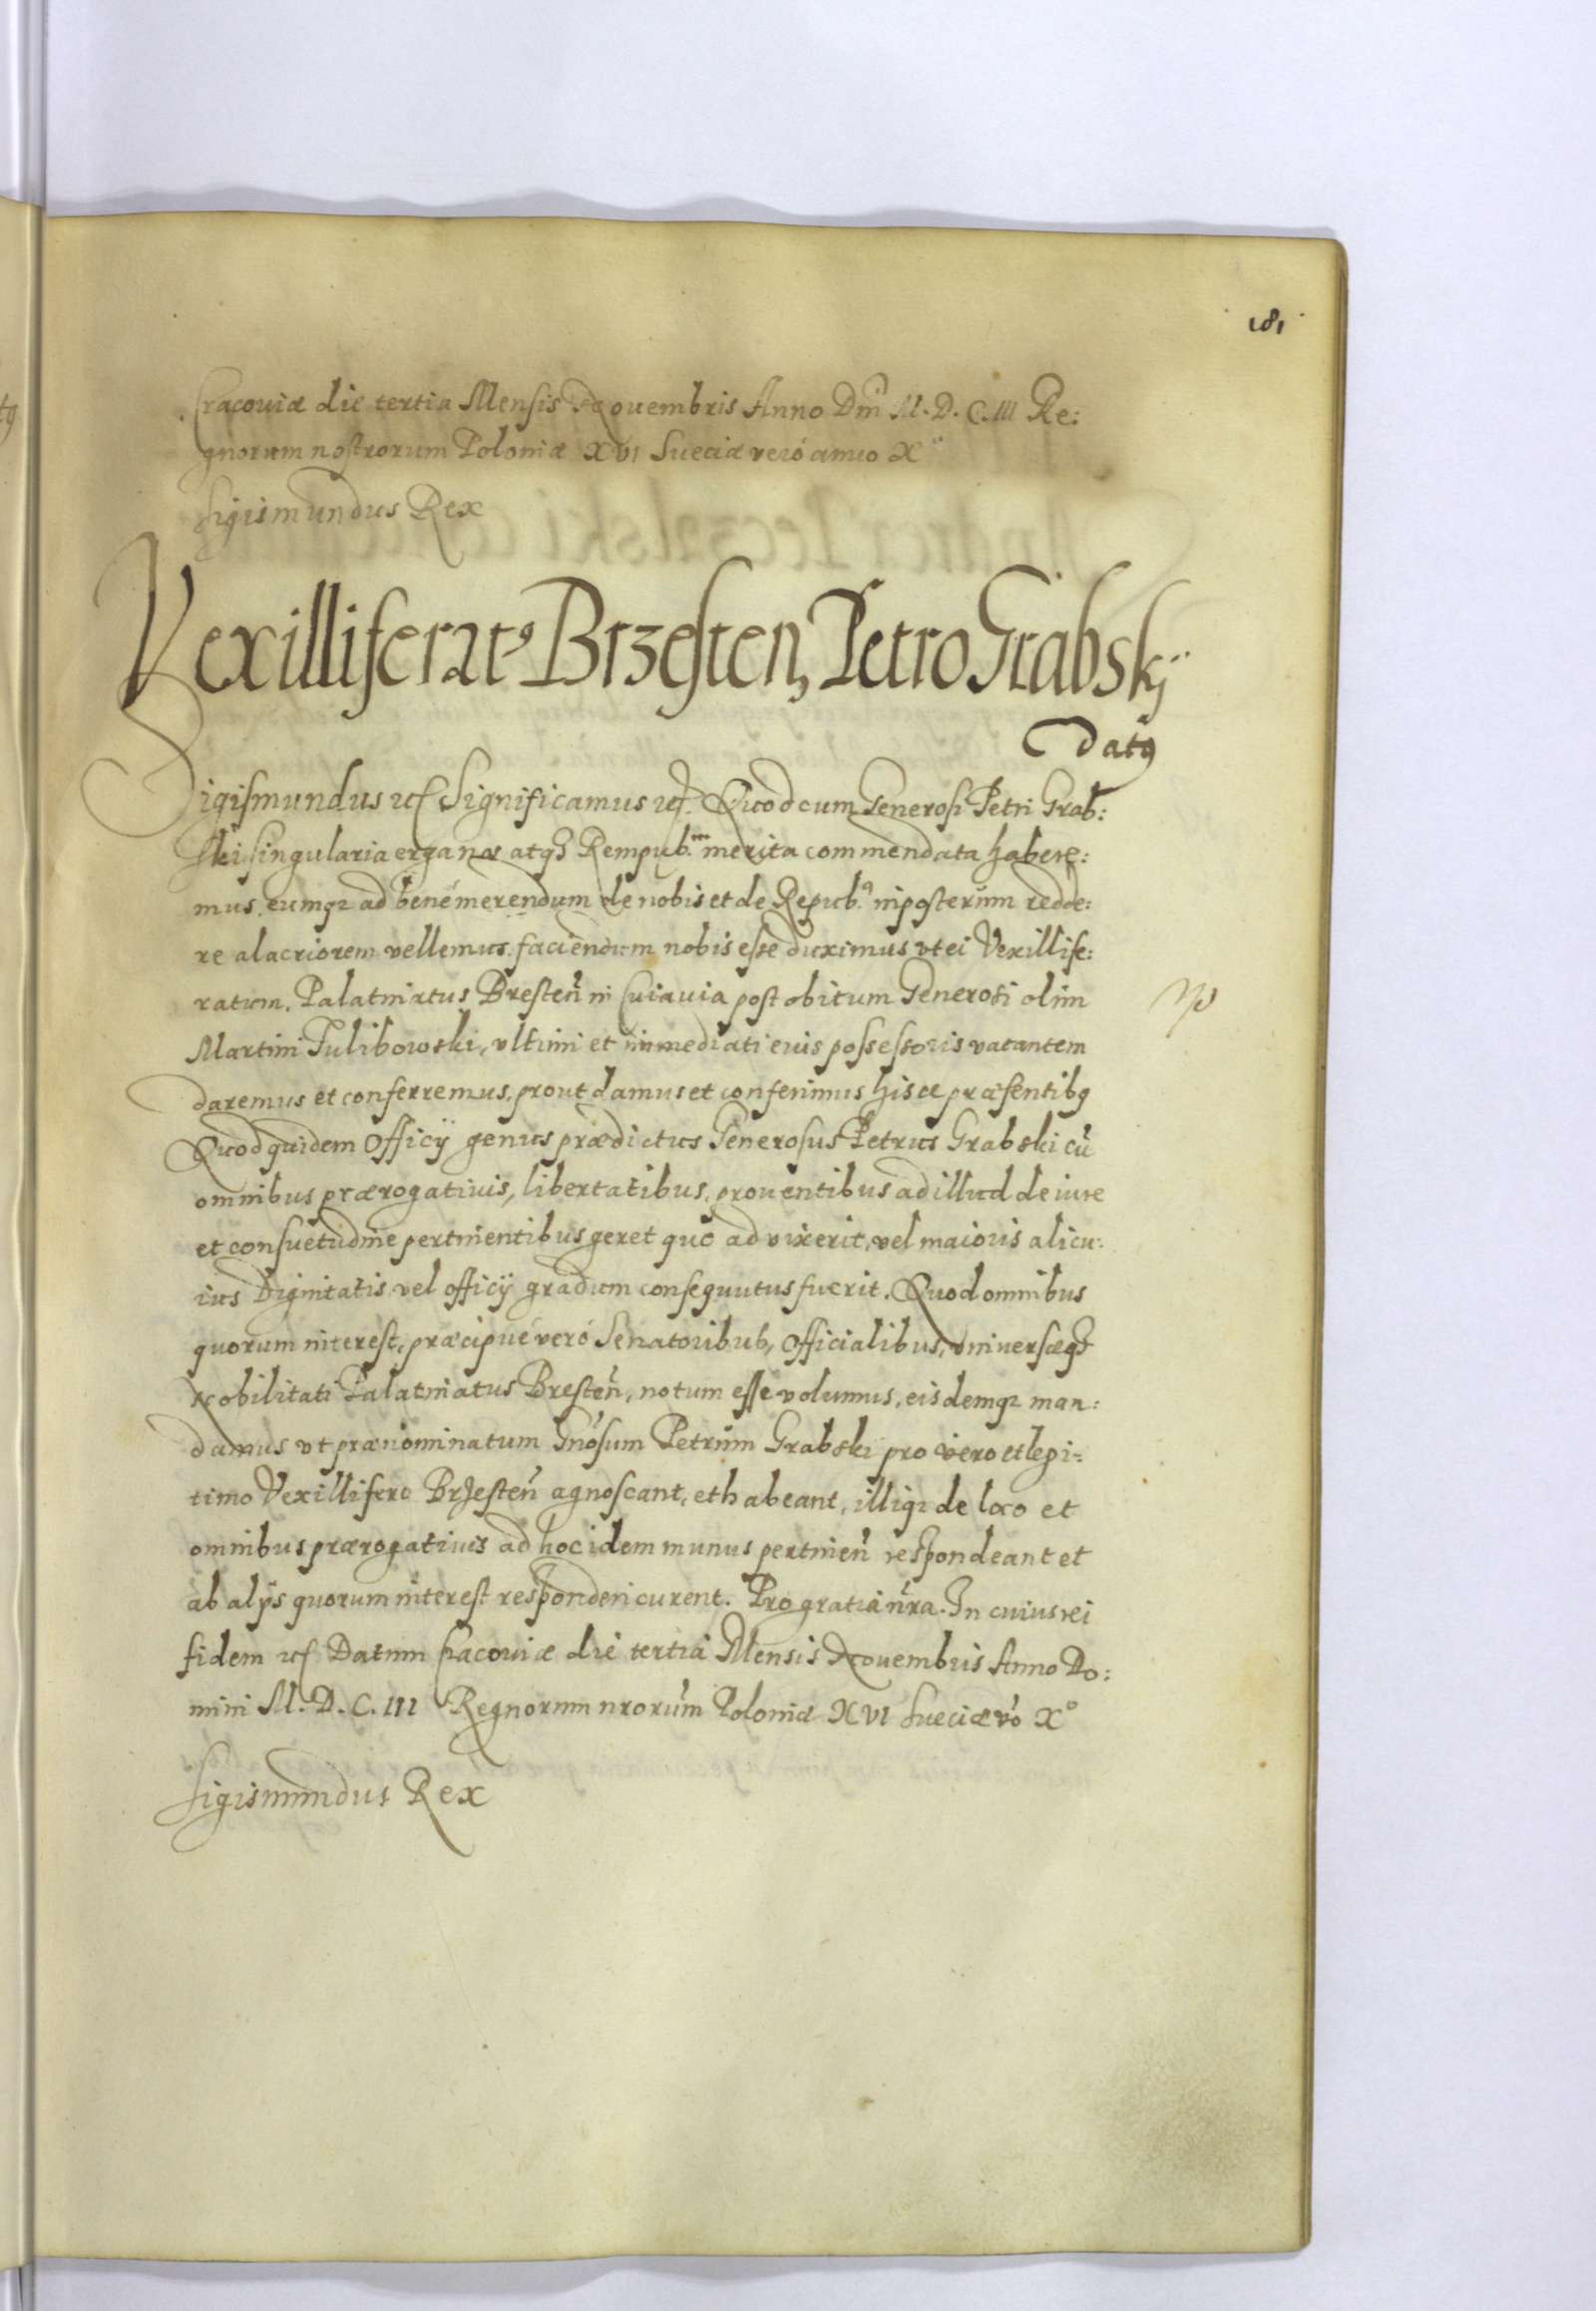 181
Cracouiæ die tertia Mensis Nouembris Anno Dm̃i M. D. C. III Re:
gnorum nostrorum Poloniæ XVI Sueciæ veró anno X°
Sigismundus Rex
Vexilliferat9 Brzesteñ, Petro Grabskÿ
Dat9
Sigismundus etc Significamus etc. Quod cum Generosi Petri Grab:
ski singularia erga nos atq3 Rempub.m merita commendata habere:
mus, eumq3 ad bene merendum de nobis et de Repub.a inposterum redde:
re alacriorem vellemus, faciendum nobis esse duximus vt ei Vexillife:
ratum, Palatinatus Bresteñ in Cuiauia post obitum Generosi olim
Martini Sulibowski, vltimi et immediati eius possessoris vacantem
daremus et conferremus, prout damus et conferimus hisce præsentib9
Quod quidem Officÿ genus prædictus Generosus Petrus Grabski cũ
omnibus prærogatiuis, libertatibus, prouentibus ad illud de iure
et consuetudine pertinentibus geret quo ad vixerit, vel maioris alicu:
ius Dignitatis vel officÿ gradum consequutus fuerit. Quod omnibus
quorum interest, præcipué veró Senatoribus, Officialibus, vniversæq3
Nobilitati Palatinatus Bresteñ, notum esse volumus, eisdemq3 man:
damus vt prænominatum Gñosum Petrum Grabski pro vero et legi:
timo Vexillifero Brzesteñ agnoscant, et habeant, illiq3 de loco et
omnibus prærogatiuis ad hoc idem munus pertineñ respondeant et
ab alÿs quorum interest responderi curent. Pro gratia ñra. In cuius rei
fidem etc Datum Cracouiæ die tertia Mensis Nouembris Anno Do:
mini M. D. C. III Regnorum nrorum̃ Poloniæ XVI Sueciæ vo X°
Sigismundus Rex